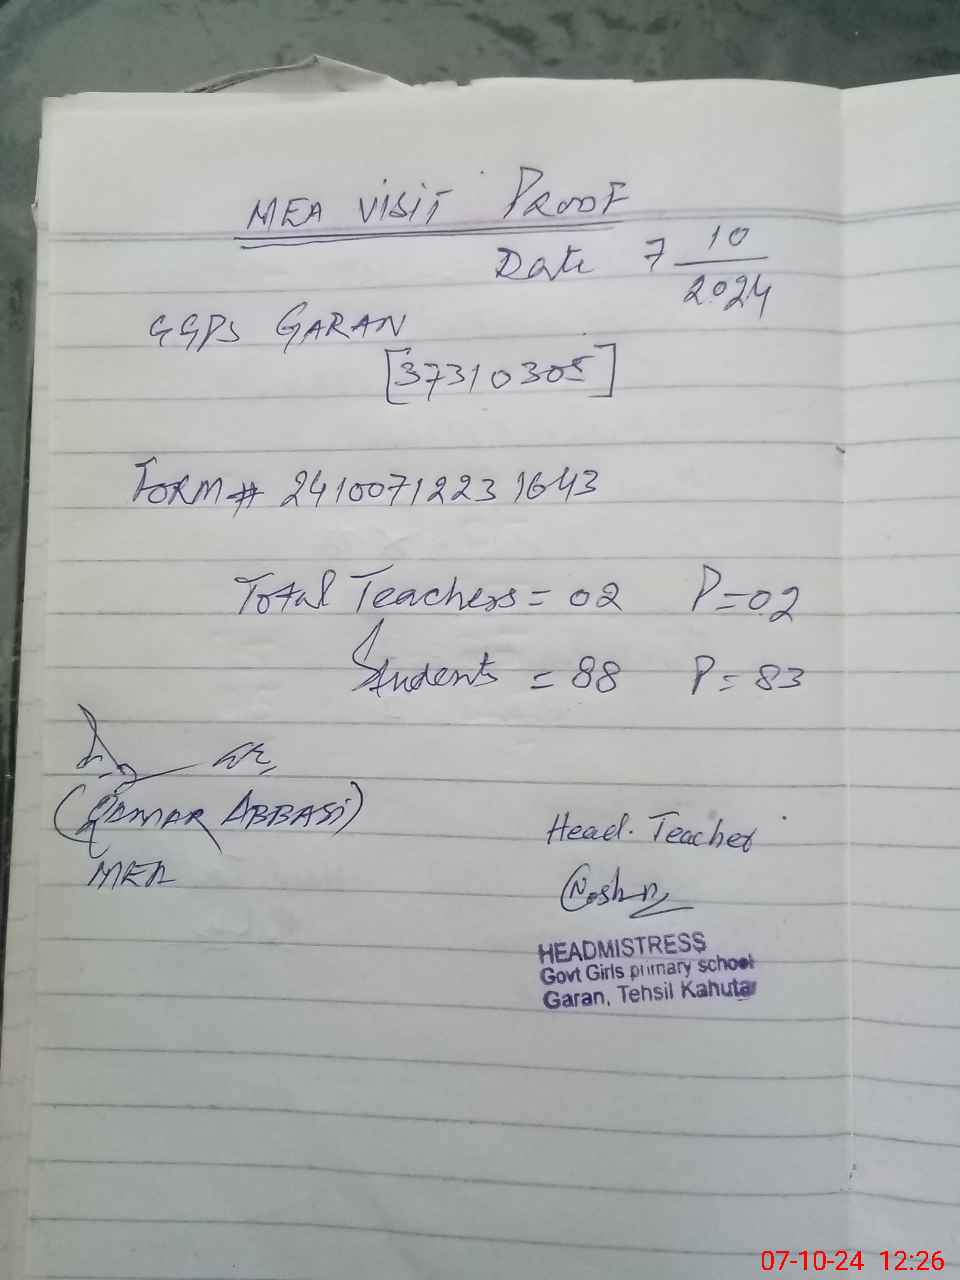 MEA VISIT PROOF
Date 7 10/2024
GGPS GARAN
[37310305]
FORM# 24100712231643
Total Teachers = 02 P=02
Students = 88 P= 83
(QAMAR ABBASI)
MEA
Head. Teacher
HEADMISTRESS
Govt Girls primary school
Garan, Tehsil Kahuta
07-10-24 12:26